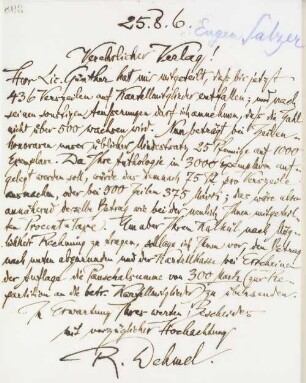 25.8.6.
Eugen Salzer
Verehrlicher Verlag!
Herr Lic. Günther hat mir mitgeteilt, daß bis jetzt
436 Verszeilen auf Kartellmitglieder entfallen; und nach
seinen sonstigen Äußerungen darf ich annehmen, daß die Zahl
nicht über 500 wachsen wird. Nun beträgt bei Zeilen-
honoraren unser üblicher Mindestsatz 25 Pfennige auf 1000
Exemplare. Da Ihre Anthologie in 3000 Exemplaren auf-
gelegt werden soll, würde das demnach 75 Pf pro Verszeile
ausmachen, also bei 500 Zeilen 375 Mark; das wäre also
annähernd derselbe Betrag wie bei der neulich Ihnen mitgeteil-
ten Procenttaxe. Um aber Ihren Notizen nach Mög-
lichkeit Rechnung zu tragen, schlage ich Ihnen vor, den Betrag
nach unten abzurunden und der Kartellkasse bei Erscheinen
der Auflage die Pauschalsumme von 300 Mark zur Re-
partition an die betr. Kartellmitglieder zu übersenden.
In Erwartung Ihres werten Bescheides
mit vorzüglicher Hochachtung
R. Dehmel.